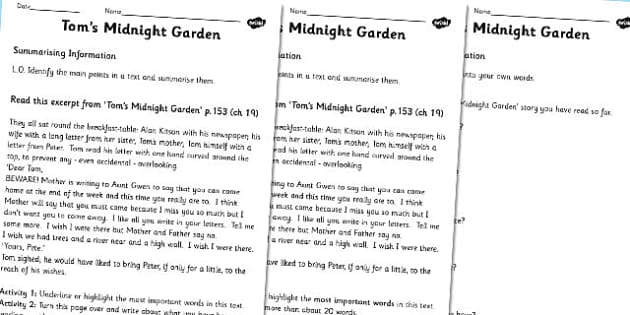 Date
Name
Tom's Midnight Garden
Summarising Information
L.O. Identify the main points in a text and summarise them.
Read this excerpt from 'Tom's Midnight Garden' p.153 (ch 19)
They all sat round the breakfast-table: Alan Kitson with his newspaper; his
wife with a long letter from her sister, Tom's mother; Tom himself with a
letter from Peter. Tom read his letter with one hand curved around the
top, to prevent any - even accidental - overlooking
'Dear Tom,
BEWARE! Mother is writing to Aunt Gwen to say that you can come
home at the end of the week and this time you really are to. I think
Mother will say that you must come because I miss you so much but I
don't want you to come away. I like all you write in your letters. Tell me
some more. I wish I were there but Mother and Father say no.
I wish we had trees and a river near and a high wall. I wish I were there.
'Yours, Pete.'
Tom sighed; he would have liked to bring Peter, if only for a little, to the
reach of his wishes.
Activity 1: Underline or highlight the most important words in this text.
Activity 2: Turn this page over and write about what
Name
Midnight Garden
ation
oints in a text and summarise them.
om 'Tom's Midnight Garden' p.153 (ch 19)
reakfast-table: Alan Kitson with his newspaper; his
er from her sister, Tom's mother; Tom himself with a
ad his letter with one hand curved around the
n accidental - overlooking
ing to Aunt Gwen to say that you can come
week and this time you really are to. I think
must come because I miss you so much but I
away. I like all you write in your letters. Tell me
re there but Mother and Father say no.
a river near and a high wall. I wish I were there.
ave liked to bring Peter, if only for a little, to the
highlight the most important words in this text.
more than about 20 words.
Name
Midnight Garden
ation
into your own words.
Midnight Garden' story you have read so far.
?
e?
?